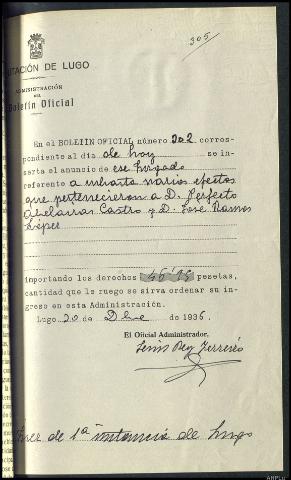 305
UTACIÓN DE LUGO
ADMINISTRACIÓN
DEL
Boletín Oficial
En el BOLETIN OFICIAL número 302 corres-
pondiente al día de hoy se in-
serta el anuncio de ese Juzgado
referente a subasta varios efectos
que pertenecieron a D. Perfecto
Abelairas Castro y D. José Ramos
López
importando los derechos 45'75 pesetas,
cantidad que le ruego se sirva ordenar su in-
greso en esta Administración.
Lugo 30 de Dbre de 1936.
El Oficial Administrador,
Rey
de 1ª instancia de Lugo
AHPLu